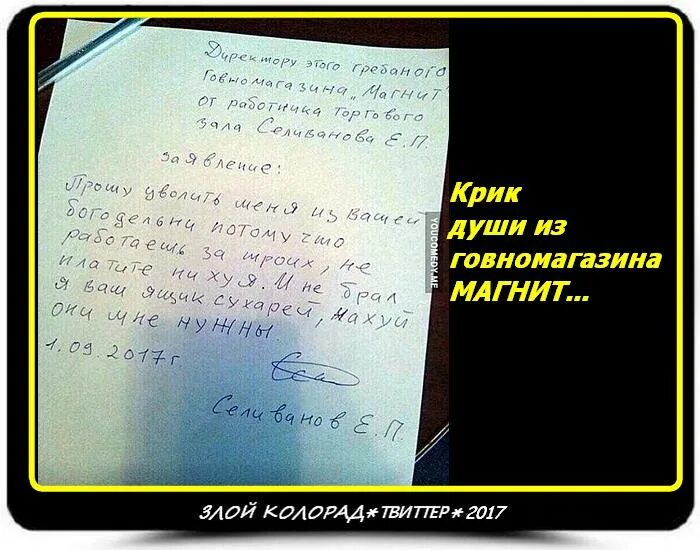 Директору этого гребаного
Говномагазина „Магнит"
от работника торгового
зала Селиванова Е.П.
заявление:
Прошу уволить меня из вашей
богодельни потому что
работаешь за троих, не
платите ни хуя. И не брал
я ваш ящик сухарей, нахуй
они мне нужны.
1.09.2017г
Селиванов Е.П.
YOUCOMEDY.ME
Крик
души из
говномагазина
МАГНИТ...
ЗЛОЙ КОЛОРАД*ТВИТТЕР*2017